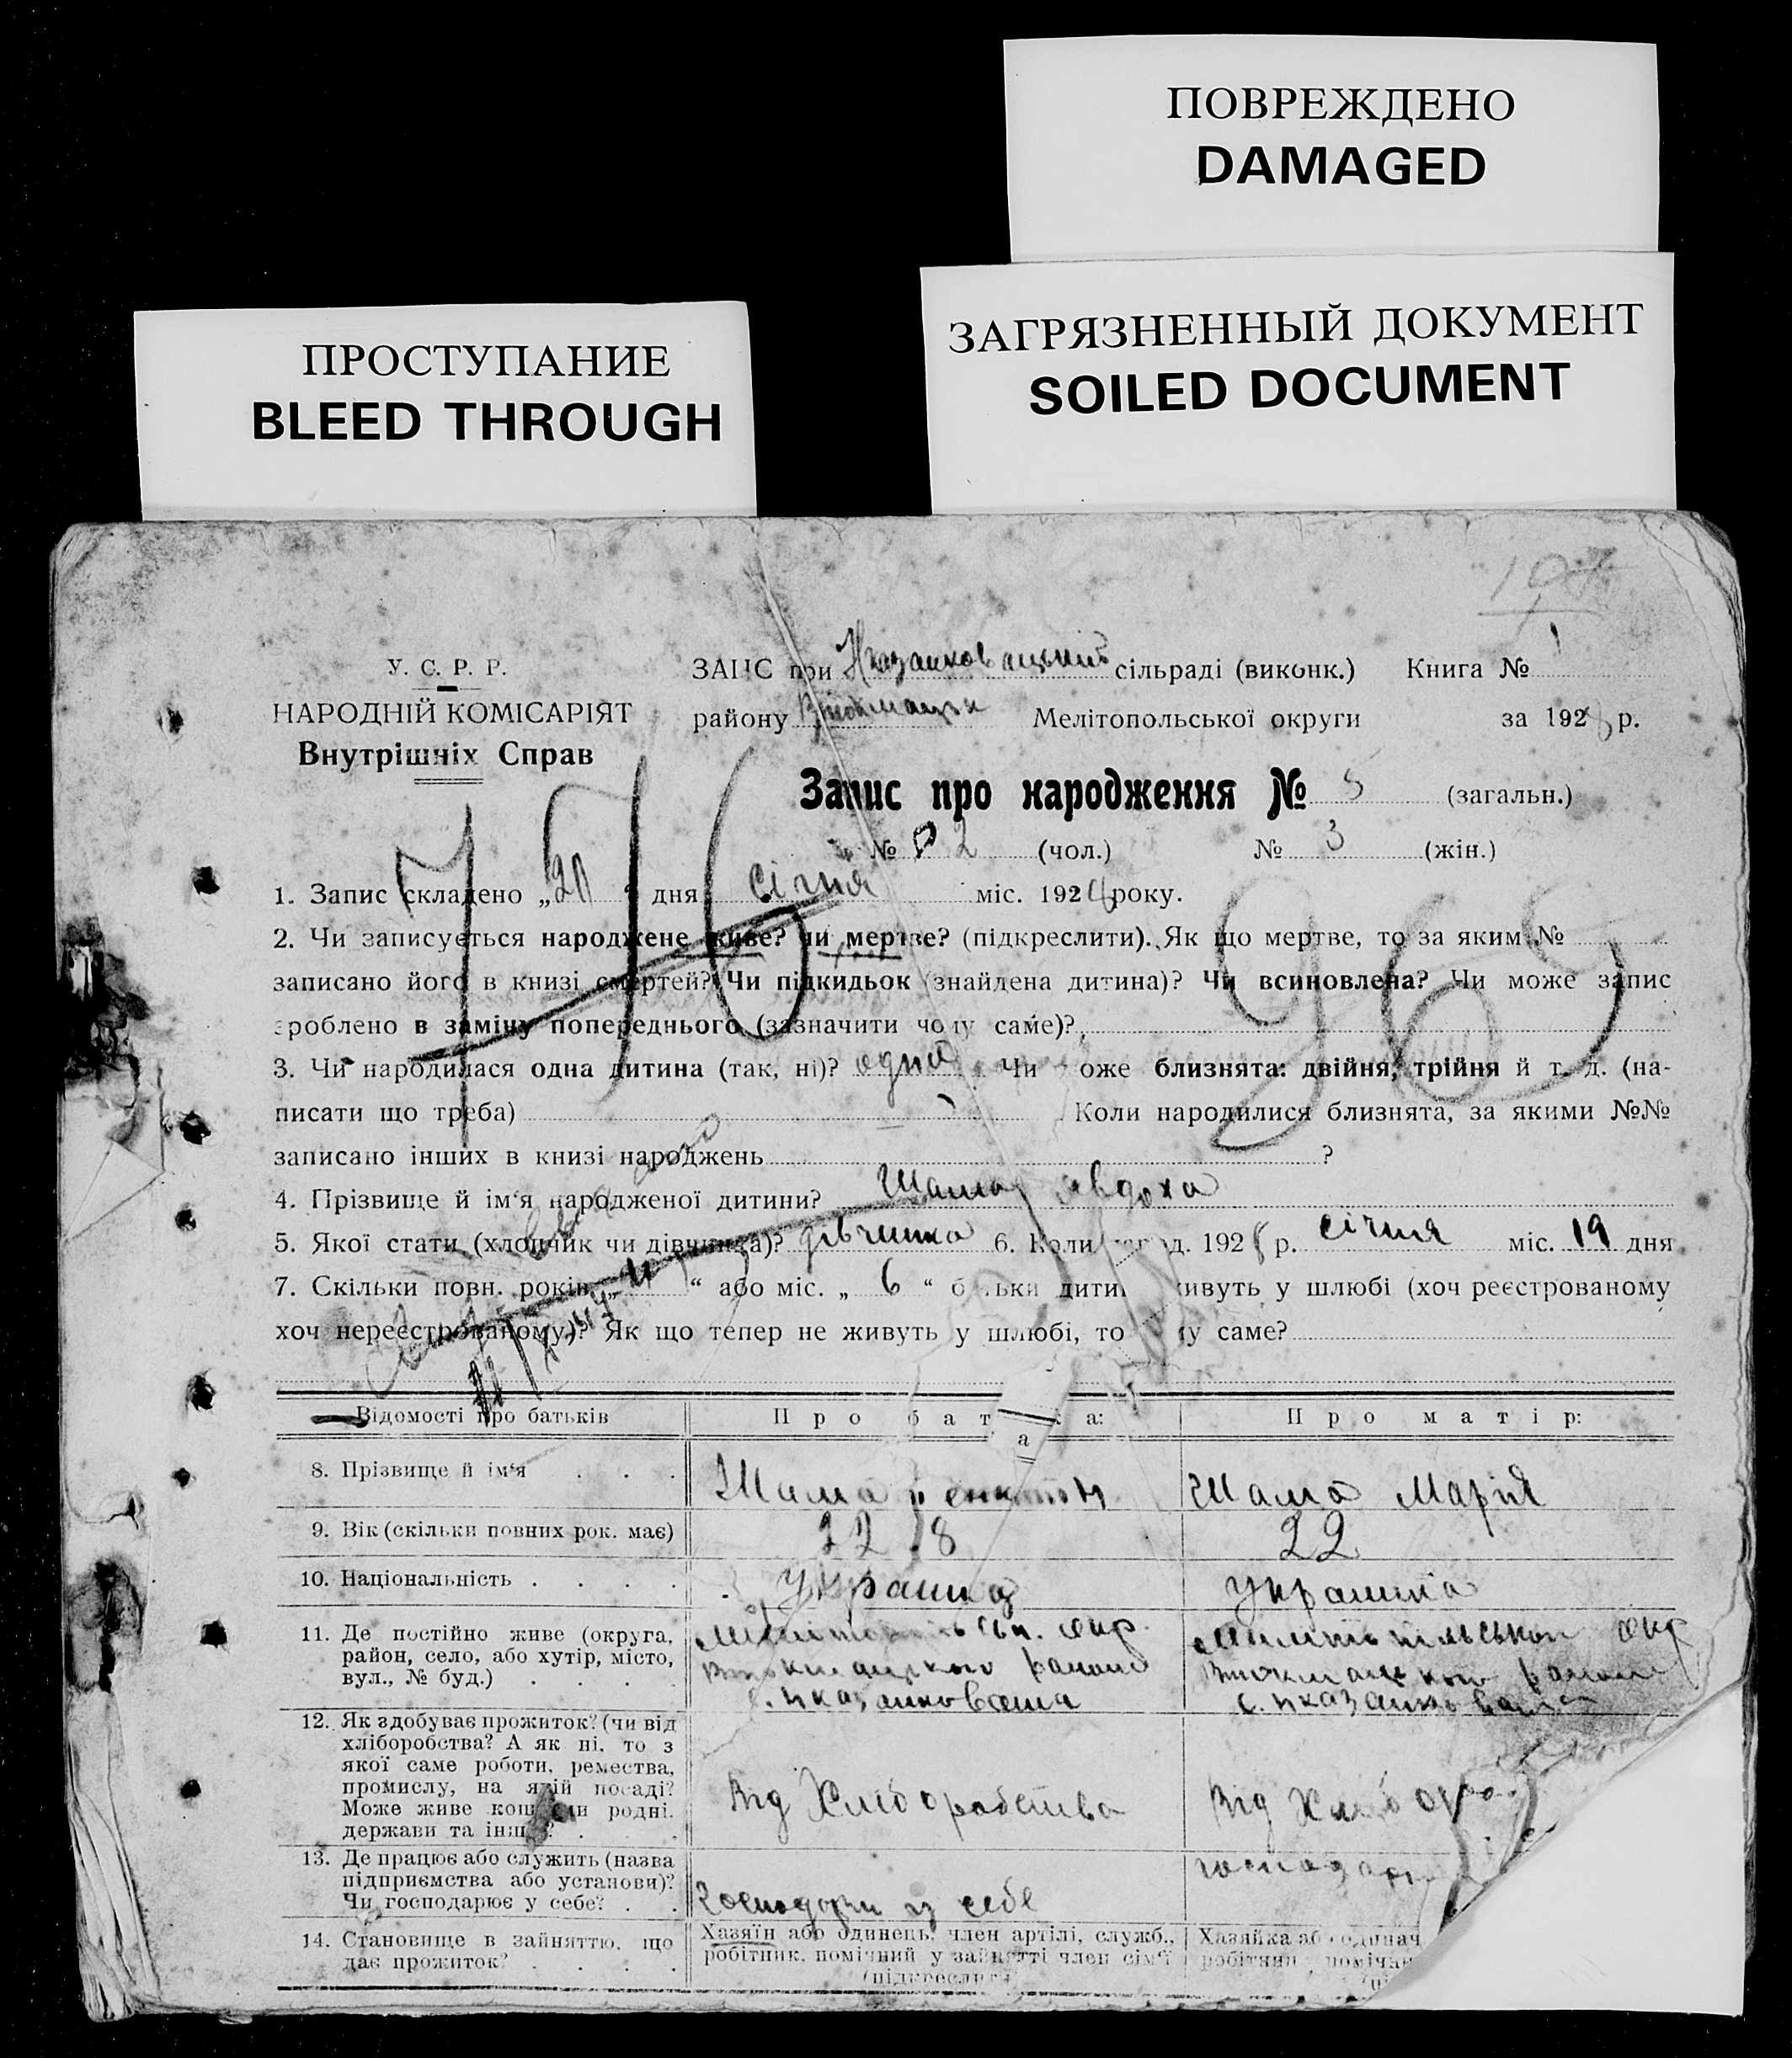 ПОВРЕЖДЕНО
DAMAGED
ПРОСТУПАНИЕ
BLEED THROUGH
ЗАГРЯЗНЕННЫЙ ДОКУМЕНТ
SOILED DOCUMENT
У. С. Р. Р.
НАРОДНІЙ КОМІСАРІЯТ
Внутрішніх Справ
ЗАГС при сільраді (виконк.) Книга № 1
району Мелітопольської округи за 1928 р.
Запис про народження № 5 (загальн.)
№ 2 (чол.) № 3 (жін.)
1. Запис складено „20“ дня січня міс. 192 року.
2. Чи записується народжене живе? чи мертве? (підкреслити). Як що мертве, то за яким №
записано його в книзі смертей? Чи підкидьок (знайдена дитина)? Чи всиновлена? Чи може запис
зроблено в заміну попереднього (зазначити чому саме)?
3. Чи народилася одна дитина (так, ні)? одна Чи може близнята: двійня, трійня й т. д. (на-
писати що треба) Коли народилися близнята, за якими №№
записано інших в книзі народжень ?
4. Прізвище й ім‘я народженої дитини? Шама Явдоха
5. Якої стати (хлопчик чи дівчинка)? дівчинка 6. Коли народ. 1928 р. січня міс. 19 дня
7. Скільки повн. років „ “ або міс. „ 6 “ батьки дитини живуть у шлюбі (хоч реєстрованому
хоч нереєстрованому)? Як що тепер не живуть у шлюбі, то чому саме?
Відомості про батьків Про батька: Про матір:
8. Прізвище й ім‘я . . . Шама Шама Марія
9. Вік (скільки повних рок. має) 22 22
10. Національність . . . . україна україніа
11. Де постійно живе (округа,
район, село, або хутір, місто,
вул., № буд.) . . . .
окр.
району
окр
району
12. Як здобуває прожиток? (чи від
хліборобства? А як ні, то з
якої саме роботи, ремества,
промислу, на якій посаді?
Може живе коштами родні,
держави та інш.? . . .
Від Хліборобства Від
13. Де працює або служить (назва
підприємства або установи)?
Чи господарює у себе? . .
у себе
14. Становище в зайняттю, що
дає прожиток? . . . .
Хазяїн або одинець, член артілі, служб.,
робітник, помічний у зайнятті член сім‘ї
(підкреслити)
Хазяйка або одинач
робітниц помічни